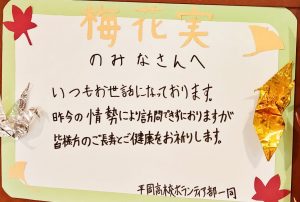 梅花実
のみなさんへ
いつもお世話になっております。
昨今の情勢により訪問できずにおりますが
皆様方のご長寿とご健康をお祈りします。
平岡高校ボランティア部一同